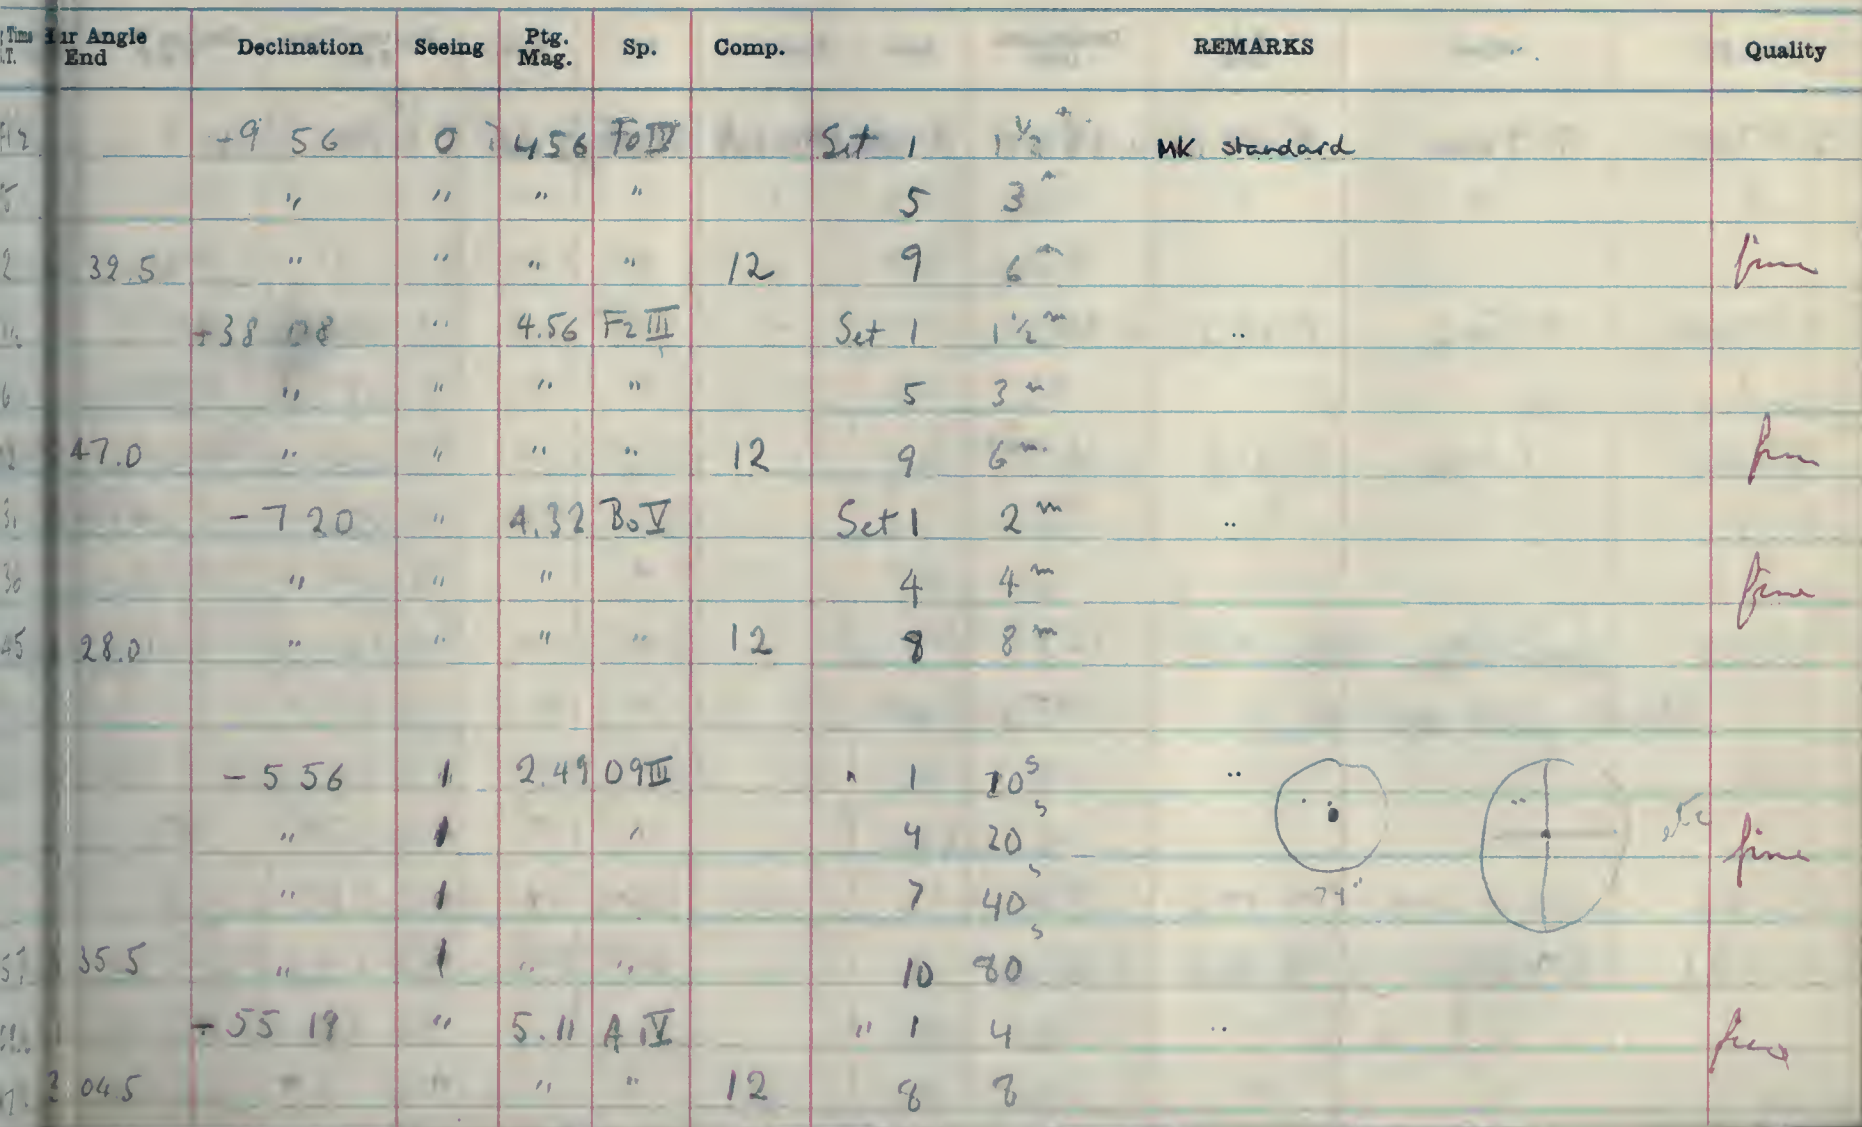 Hour Angle End Declination Seeing Ptg. Mag. Sp. Comp. REMARKS Quality
-9 56 0 456 F0 IV Set 1 1 1/2 m MK standard
" " " " 5 3 m
39.5 " " " " 12 9 6 m fine
+38 08 " 4.56 F2 III Set 1 1 1/2 m "
" " " " 5 3 m
47.0 " " " " 12 9 6 m. fine
-7 20 " 4.32 B0 V Set 1 2 m "
36 " " " 4 4 m fine
45 28.0 " " " " 12 8 8 m
-5 56 1 2.49 O9 III " 1 10 s "
" 1 " 4 20 s etc fine
" 1 " " 7 40 s
35 5 " 1 " " 10 80 s
55 19 " 5.11 A1V " 1 4 " fine
2 04.5 " " " " 12 8 8